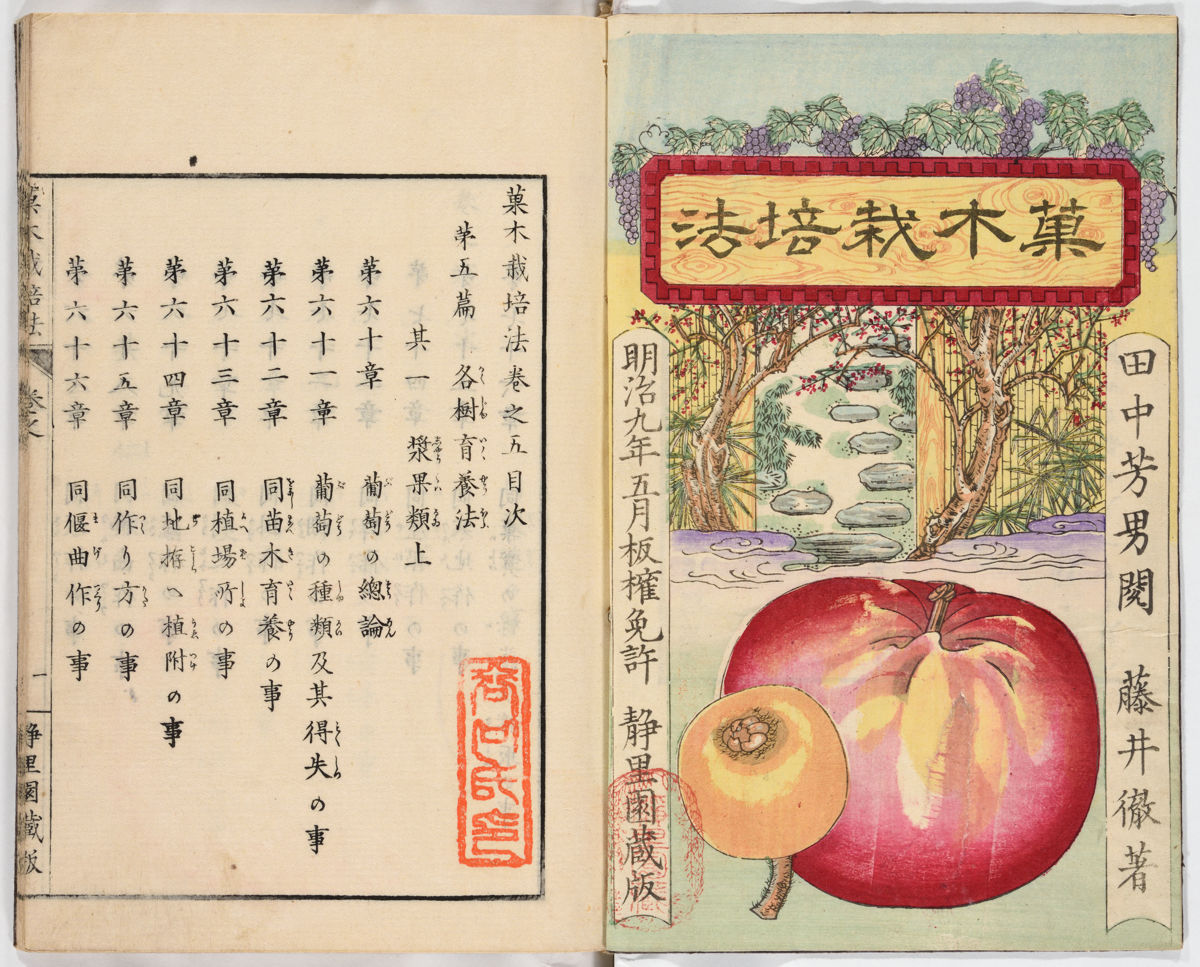 菓木栽培法
田中芳男閲　藤井徹著
明治九年五月板権免許　静里園蔵版
菓木栽培法巻之五目次
第五篇　各樹育養法
其一　漿果類上
第六十章　葡萄の總論
第六十一章　葡萄の種類及其得失の事
第六十二章　同苗木育養の事
第六十三章　同植場所の事
第六十四章　同地拵へ植附の事
第六十五章　同作り方の事
第六十六章　同偃曲作の事
菓木栽培法　巻之　一　静里園蔵版